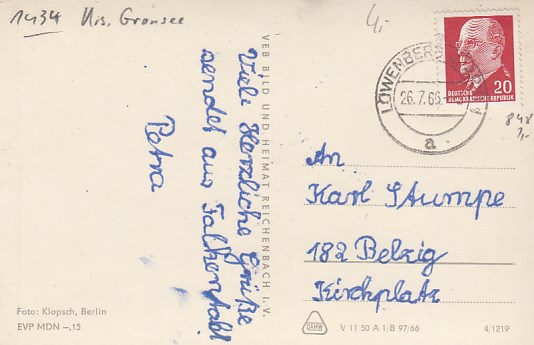 1434 Krs. Gransee
4,-
Viele Herzliche Grüße
sendet aus Falkenthal
Petra
VEB BILD UND HEIMAT REICHENBACH I. V.
LÖWENBERG
26.7.66
a
20
DEUTSCHE
DEMOKRATISCHE REPUBLIK
848
An
Karl Stumpe
182 Belzig
Kirchplatz
Foto: Klopsch, Berlin
EVP MDN –,15
DAMW
V 11 50 A 1/B 97/66
4/1219